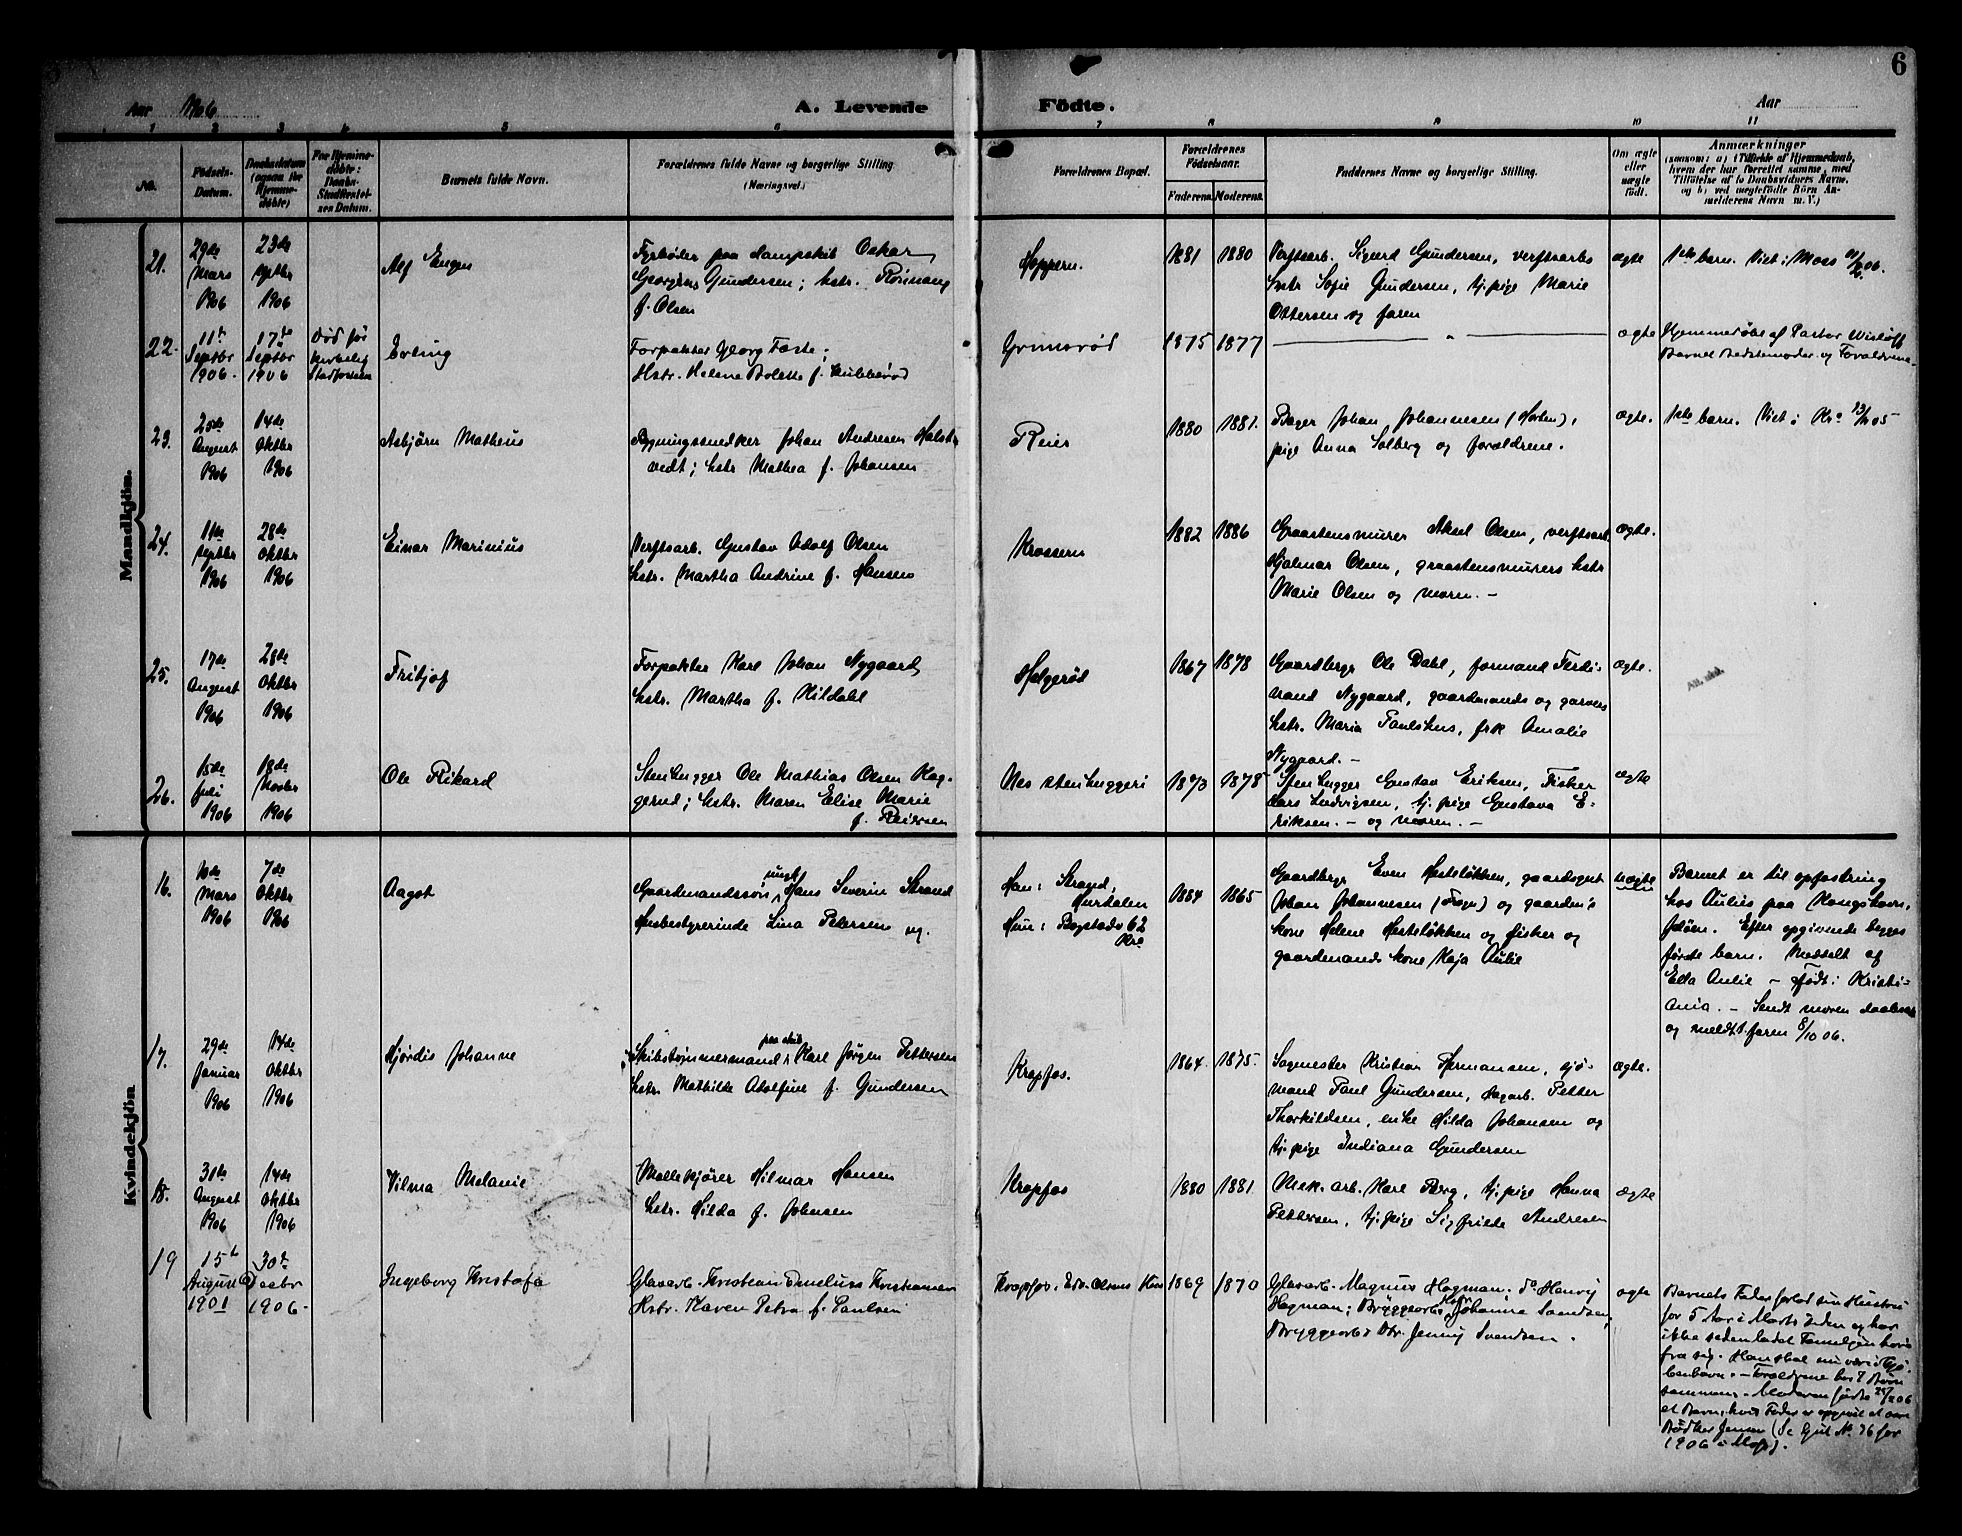 6
Aar 1906
A. Levende
Födte.
Aar
1 2 3 4 5 6 7 8 9 10 11
No.
Födsels-
Datum.
Daabsdatum
(ogsaa for
Hjemme-
döbte)
For Hjemme-
döbte:
Daabs-
Stadfæstel-
ses Datum.
Barnets fulde Navn.
Forældrenes fulde Navne og borgerlige Stilling
(Næringsvei.)
Forældrenes Bopæl.
Forældrenes
Födselsaar.
Faderens. Moderens.
Faddernes Navne og borgerlige Stilling.
Om ægte
eller
uægte
födt.
Anmærkninger
(saasom: a) i Tilfælde af Hjemmedaab,
hvem der har forrettet samme, med
Tilföielse af to Daabsvidners Navne.
og b) ved uægtefödte Börn An-
melderens Navn m. V.)
Mandkjön.
21.
29de
Mars
1906
23de
septbr
1906
Alf Enger
Fyrbøder paa dampskib Oskar
Georgius Gundersen; hstr. Rønnaug
f. Olsen
Hoppern.
1881
1880
Verftsarb. Sigurd Gundersen, verftsarbs
hstr Sofie Gundersen, tj. pige Marie
Ottersen og faren
ægte
1ste barn. Viet i Moss
22.
11te
Septbr
1906.
17de
Septbr
1906
Død før
kirkelig
Stadfæstelse
Erling
Forpakter Georg Foste;
Hstr. Helene Bolette f. Kubberød
Grimsrød
1875
1877
— " —
ægte
Hjemmedøbt af Pastor Wisløff
Barnets Bedstemoder og Forældrene.
23.
25de
August
1906
14de
Oktbr
1906
Asbjørn Matheus
Bygningssnedker Johan Andersen Halst
vedt; hstr Mathea f. Johansen
Reier
1880
1881.
Bager Johan Johannesen (Horten),
pige Anna Solberg og forældrene.
ægte.
1ste barn. Viet i Kra 23/12 05
24.
11te
septbr
1906
28de
Oktbr
1906
Einar Marinius
Verftsarb. Gustav Adolf Olsen
hstr. Martha Andrine f. Hansen
Krossern
1882
1886
Graastensmurer Aksel Olsen, verftsarb.
Hjalmar Olsen, graastensmurers hstr
Marie Olsen og moren. –
ægte.
25.
17de
August
1906
28de
Oktbr
1906
Fritjof
Forpakter Karl Johan Nygaard,
hstr. Martha f. Kildahl
Helgerød
1867
1878
Gaardbrgr Ole Dahl, formand Ferdi-
nand Nygaard, gaardmands og garvers
hstr. Maria Paulshus, frk Amalie
Nygaard. –
ægte.
26.
15de
Juli
1906
18de
Novbr
1906
Ole Rikard
Stenhugger Ole Mathias Olsen Kag-
gerud; hstr. Maren Elise Marie
f. Reiersen
Nes stenhuggeri
1873
1878
Stenhugger Gustav Eriksen, Fisker
Lars Ludvigsen, tj. pige Gustava E-
riksen. – og moren. –
ægte
Kvindekjön
16.
10de
Mars
1906
7de
Oktbr
1906
Aagot
ungk
Gaardmandssøn, Hans Severin Strand
Husbestyrerinde Lina Petersen ug.
Han: Strand,
Hurdalen
Hun: Bogstadv 62
Kra
1884
1865
Gaardbrgr Even Hesteløkken, gaardsgut
Johan Johannesen (Frogn) og gaardm's
kone Helene Hesteløkken og fisker og
gaardmands kone Kaja Aulie
uægte
Barnet er til opfostring
hos Aulies paa Kongshavn,
Jeløen. Efter opgivende begges
første barn. Meddelt af
Ella Aulie – Født i Kristi-
ania. – Sendt moren daabsat.
og meldt faren 8/10 06.
17.
29de
Januar
1906
14de
Oktbr
1906
Hjørdis Johanne
paa skib
Skibstømmermand Karl Jørgen Pettersen
hstr. Mathilde Adolfine f. Gundersen
Krapfos.
1864.
1875.
Sagmester Kristian Hermansen, sjø-
mand Paul Gundersen, sagarb. Petter
Thorkildsen, enke Hilda Johansen og
tj. pige Indiana Gundersen
ægte.
18.
31de
August
1906
14de
Oktbr
1906
Vilma Melanie
Møllekjører Hilmar Hansen
hstr. Hilda f. Johnsen
Krapfos
1880
1881
Mek. arb. Karl Berg, tj. pige Hanna
Pettersen, tj. pige Sigfride Andresen
ægte
19
15de
August
1901
30te
Decbr
1906.
Ingeborg Kristofa
Glasarb. Kristian Emelius Kristiansen
Hstr. Karen Petra f. Paulsen
Krapfos, Edv. Olsens Hus
1869
1870
Glasarb. Magnus Hagman; do Henrij
Hagman; Bryggearb. Hstr Johanne Svendsen,
Bryggearbs Dtr. Jenny Svendsen.
ægte
Barnets Fader forlod sin Hustru
for 5 Aar i Marts siden og har
ikke siden ladet Familjen høre
fra sig. Han skal nu være i Kjø-
benhavn. – Forældrene har 7 Børn
sammen. Moderen fødte
et Barn, hvis Fader er opgivet at være
Bødker Jensen (Se Gjul N. 76 for
1906 i Moss).